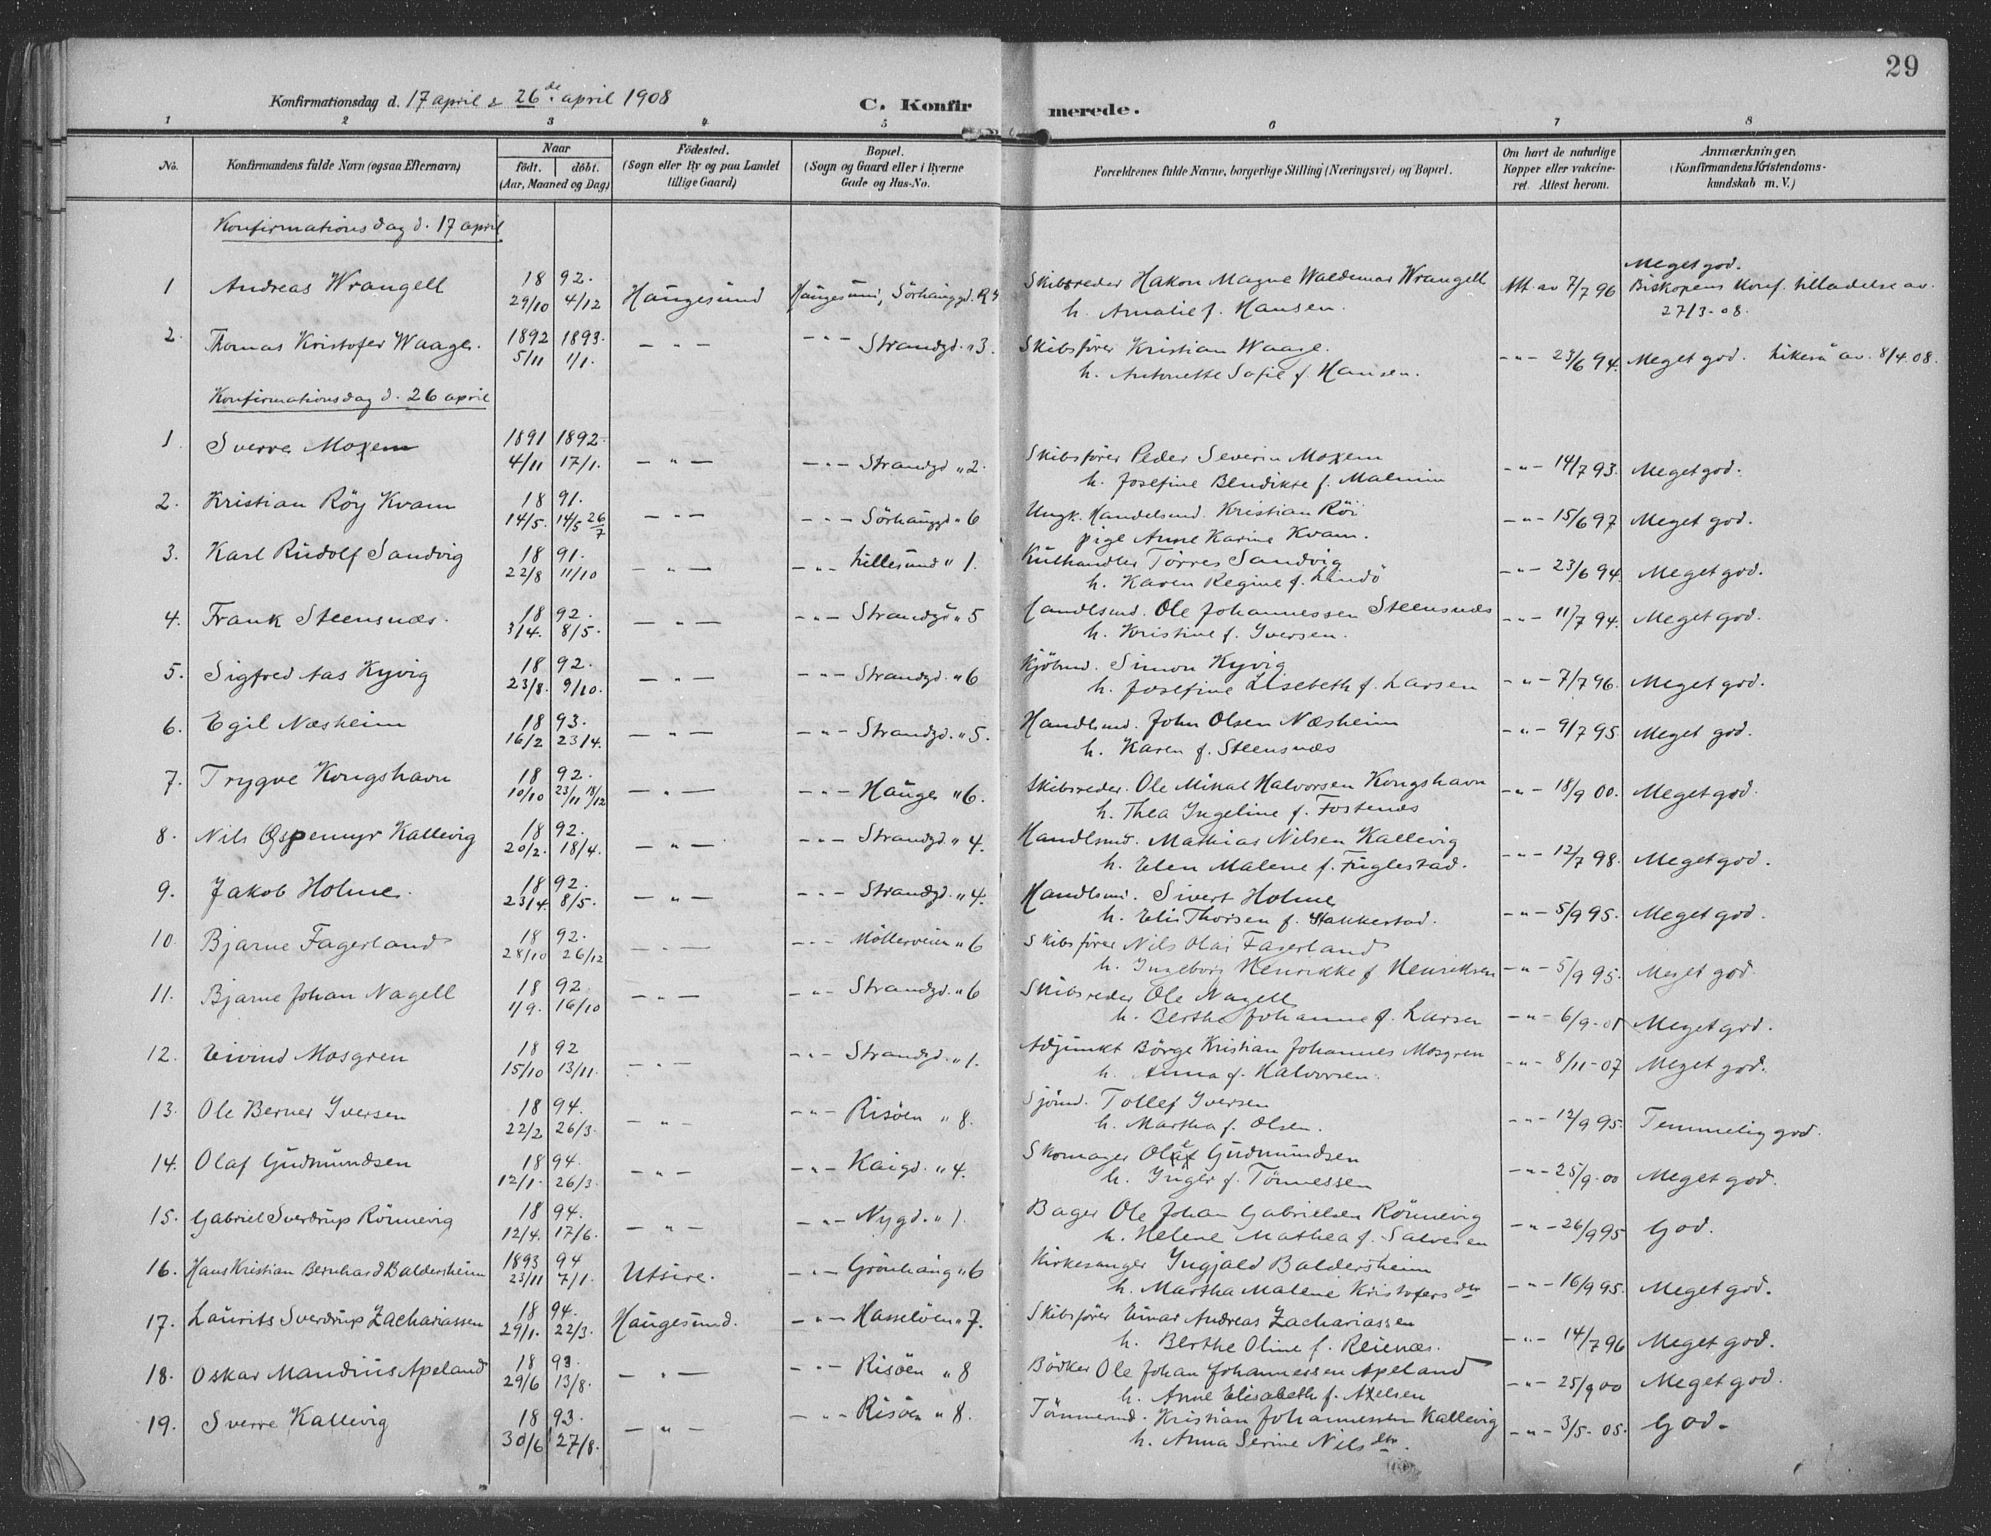 29
Konfirmationsdag d. 17 april & 26de april 1908
C. Konfirmerede.
1 2 3 4 5 6 7 8
No. Konfirmandens fulde Navn (ogsaa Efternavn) Naar født. døbt. (Aar, Maaned og Dag) Fødested. (Sogn eller By og paa Landet tillige Gaard) Bopæl. (Sogn og Gaard eller i Byerne Gade og Hus-No. Forældrenes fulde Navne, borgerlige Stilling (Næringsvei) og Bopæl. Om havt de naturlige Kopper eller vaccineret. Attest herom. Anmærkninger. (Konfirmandens Kristendomskundskab m. V.)
Konfirmationsdag d. 17 april
1 Andreas Wrangell 1892. 29/10 4/12 Haugesund Haugesund, Sörhauggd. Skibsreder Hakon Magne Waldemar Wrangell Att. av 7/7 96 Meget god.
h. Amalie f. Hansen. Biskopens konf. tilladelse av 27/3-08.
2. Thomas Kristofer Waage. 1892 1893. 5/11 1/1. — " — - " - Strandgd. "3. Skibsfører Kristian Waage. — " — 23/6 94. Meget god. Likeså av. 8/4.08.
h. Antonette Sofie f. Hansen.
Konfirmationsdag d. 26 april
1. Sverre Moxem 1891 1892. 4/11 17/1. — " — - " - Strandgd "2. Skibsfører Peder Severin Moxem — " — 14/7 93. Meget god.
h. Josefine Bendikte f. Malmin
2. Kristian Röy Kvam 1891. 14/5. 14/5 26/7 — " — - " - Sörhauggd "6 Ungk. Handelsmd. Kristian Röi — " — 15/6 97 Meget god.
pige Anne Karine Kvam.
3. Karl Rudolf Sandvig 1891. 22/8 11/10 — " — - " - Lillesund "1. Kulhandler Törres Sandvig — " — 23/6 94. Meget god.
h. Karen Regine f. Lindö
4. Frank Steensnæs. 1892. 3/4. 8/5. — " — - " - Strandgd "5 Handlsmd. Ole Johannessen Steensnæs — " — 11/7 94. Meget god.
h. Kristine f. Iversen.
5. Sigfred Aas Kyvig 1892. 23/8. 9/10. — " — - " - Strandgd. "6 Kjöbmd. Simon Kyvig — " — 7/7 96. Meget god.
h. Josefine Lisebeth f. Larsen
6. Egil Næsheim 1893. 16/2 23/4. — " — - " - Strandgd. "5. Handlsmd. John Olsen Næsheim — " — 9/7 95. Meget god.
h. Karen f. Steensnæs
7. Trygve Kongshavn 1892. 10/10 23/11 18/12 — " — - " - Hauge "6. Skibsreder. Ole Mikal Halvorsen Kongshavn — " — 18/9 00. Meget god.
h. Thea Ingeline f. Fostenæs
8. Nils Ospemyr Kallevig 1892. 20/2. 18/4. — " — - " - Strandgd. "4. Handlsmd. Mathias Nilsen Kallevig — " — 12/7 98. Meget god.
h. Elen Malene f. Fuglestad.
9. Jakob Holme. 1892. 23/4. 8/5. — " — - " - Strandgd. "4. Handlsmd. Sivert Holme — " — 5/9 95. Meget god.
h. Elis Thorsen f. Stakkestad.
10. Bjarne Fagerland 1892. 28/10 26/12 — " — - " - Möllerveien "6 Skibsfører Nils Olai Fagerland — " — 5/9 95. Meget god.
h. Ingeborg Henrikke f. Henriksen
11. Bjarne Johan Nagell 1892. 1/9. 16/10 — " — - " - Strandgd. "6 Skibsreder Ole Nagell — " — Meget god.
h. Berthe Johanne f. Larsen
12. Eivind Mosgren 1892 15/10 13/11. — " — - " - Strandgd. "1. Adjunkt Börge Kristian Johannes Mosgren — " — 8/11-07 Meget god.
h. Anna f. Halvorsen.
13. Ole Berner Iversen 1894. 22/2 26/3. — " — - " - Risöen "8. Sjömd. Tollef Iversen — " — 12/9 95. Temmelig god.
h. Martha f. Olsen.
14. Olaf Gudmundsen 1894. 12/1. 26/3. — " — - " - Kaigd. "4. Skomager Olaf Gudmundsen — " — 25/9-00 Meget god.
h. Inger f. Tönnessen
15. Gabriel Sverdrup Rönnevig 1894. 12/4. 17/6. — " — - " - Nygd. "1. Bager Ole Johan Gabrielsen Rönnevig — " — 26/9 95 God.
h. Helene Mathea f. Salvesen
16. Hans Kristian Bernhard Baldersheim 1893 94 23/11 7/1. Utsire. - " - Grönhaug "6 Kirkesanger Ingjald Baldersheim — " — 16/9 95. Meget god.
h. Martha Malene Kristofersdtr
17. Laurits Sverdrup Zachariassen 1894. 29/1. 22/3. Haugesund. - " - Hasselöen "7. Skibsfører Einar Andreas Zachariassen — " — 14/7 96 Meget god.
h. Berthe Oline f. Reienæs.
18. Oskar Mandius Apeland 1893. 29/6 13/8. — " — - " - Risöen "8 Bödker Ole Johan Johannessen Apeland — " — 25/9 00 Meget god.
h. Anne Elisabeth f. Axelsen
19. Sverre Kallevig 1893. 30/6 27/8. — " — - " - Risöen "8. Tömmermd. Kristian Johannessen Kallevig — " — 3/5-05. God.
h. Anna Serine Nilsdtr.